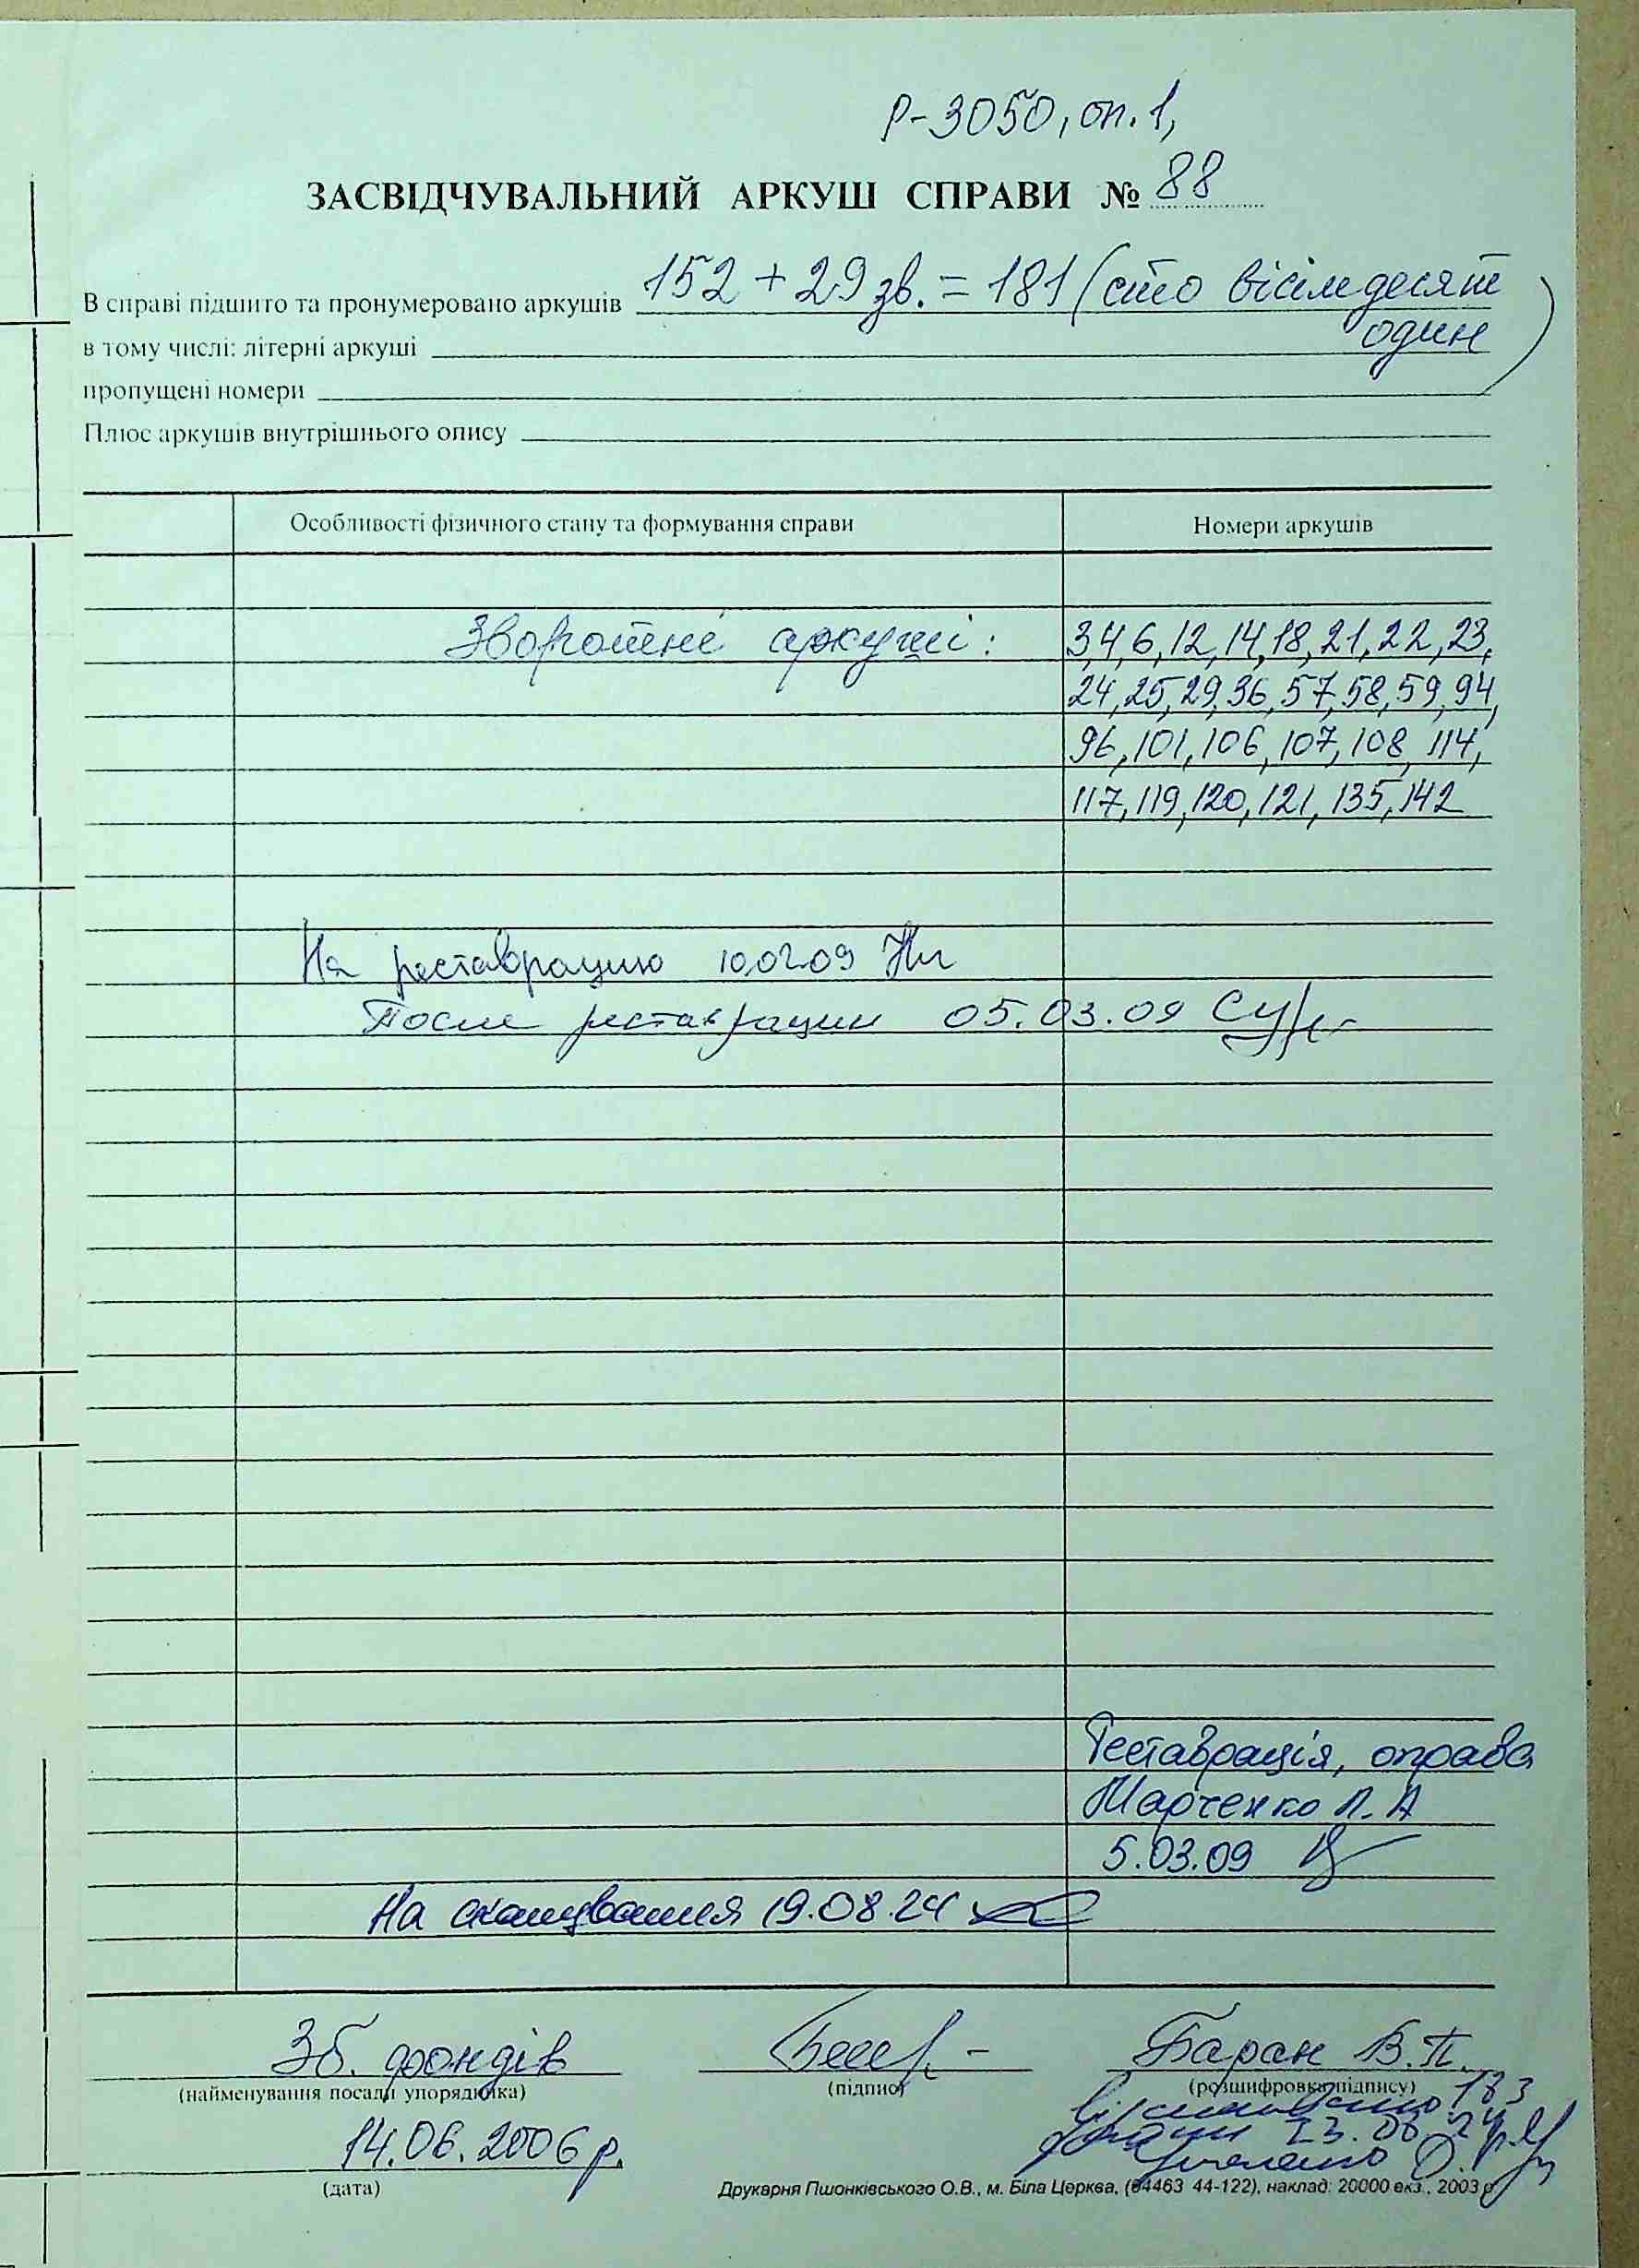 Р-3050, оп. 1,
ЗАСВІДЧУВАЛЬНИЙ АРКУШ СПРАВИ № 88
В справі підшито та пронумеровано аркушів 152 + 29 зв. = 181 (сто вісімдесят
в тому числі: літерні аркуші один)
пропущені номери
Плюс аркушів внутрішнього опису
Особливості фізичного стану та формування справи Номери аркушів
Зворотені аркуші: 3,4,6,12,14,18,21,22,23,
24,25,29,36,57,58,59,94,
96,101,106,107,108,114,
117,119,120,121,135,142
На реставрацию 10.02.09
После реставрации 05.03.09
Реставрація, оправа
Марченко Л. А
5.03.09
На сканування 19.08.24
Зб. фондів Баран В.П.
(найменування посади упорядника) (підпис) (розшифровка підпису)
183
14.06.2006 р.
(дата)
Друкарня Пшонківського О.В., м. Біла Церква, (04463 44-122), наклад: 20000 екз., 2003 р.